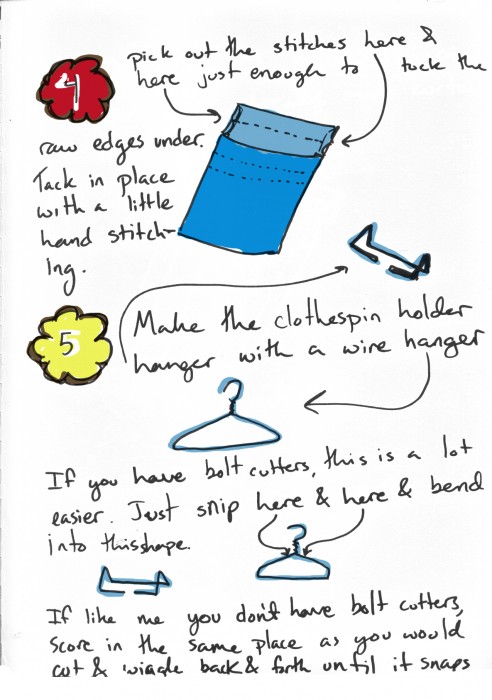 4
pick out the stitches here &
here just enough to tuck the
raw edges under.
Tack in place
with a little
hand stitch-
ing.
5
Make the clothespin holder
hanger with a wire hanger
If you have bolt cutters, this is a lot
easier. Just snip here & here & bend
into this shape.
If like me you don't have bolt cutters,
score in the same place as you would
cut & wiggle back & forth until it snaps